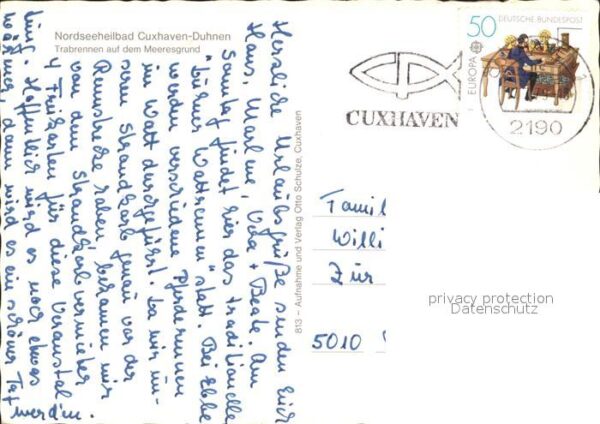 Nordseeheilbad Cuxhaven-Duhnen
Trabrennen auf dem Meeresgrund
Herzliche Urlaubsgrüße senden Euch
Hans, Marlene, Udo + Beate. Am
Sonntag findet hier das traditionelle
"Duhner Wattrennen" statt. Bei Ebbe
werden verschiedene Pferderennen
im Watt durchgeführt. Da wir un-
seren Strandkorb genau vor der
Rennstrecke haben, bekamen wir
von dem Strandkorbvermieter
4 Freikarten für diese Veranstal-
tung. Hoffentlich wird es noch etwas
wärmer, dann wird es ein schöner Tag werden.
813 – Aufnahme und Verlag Otto Schulze, Cuxhaven
50
DEUTSCHE BUNDESPOST
EUROPA
CUXHAVEN
2190
Famil
Willi
Zur
5010
privacy protection
Datenschutz